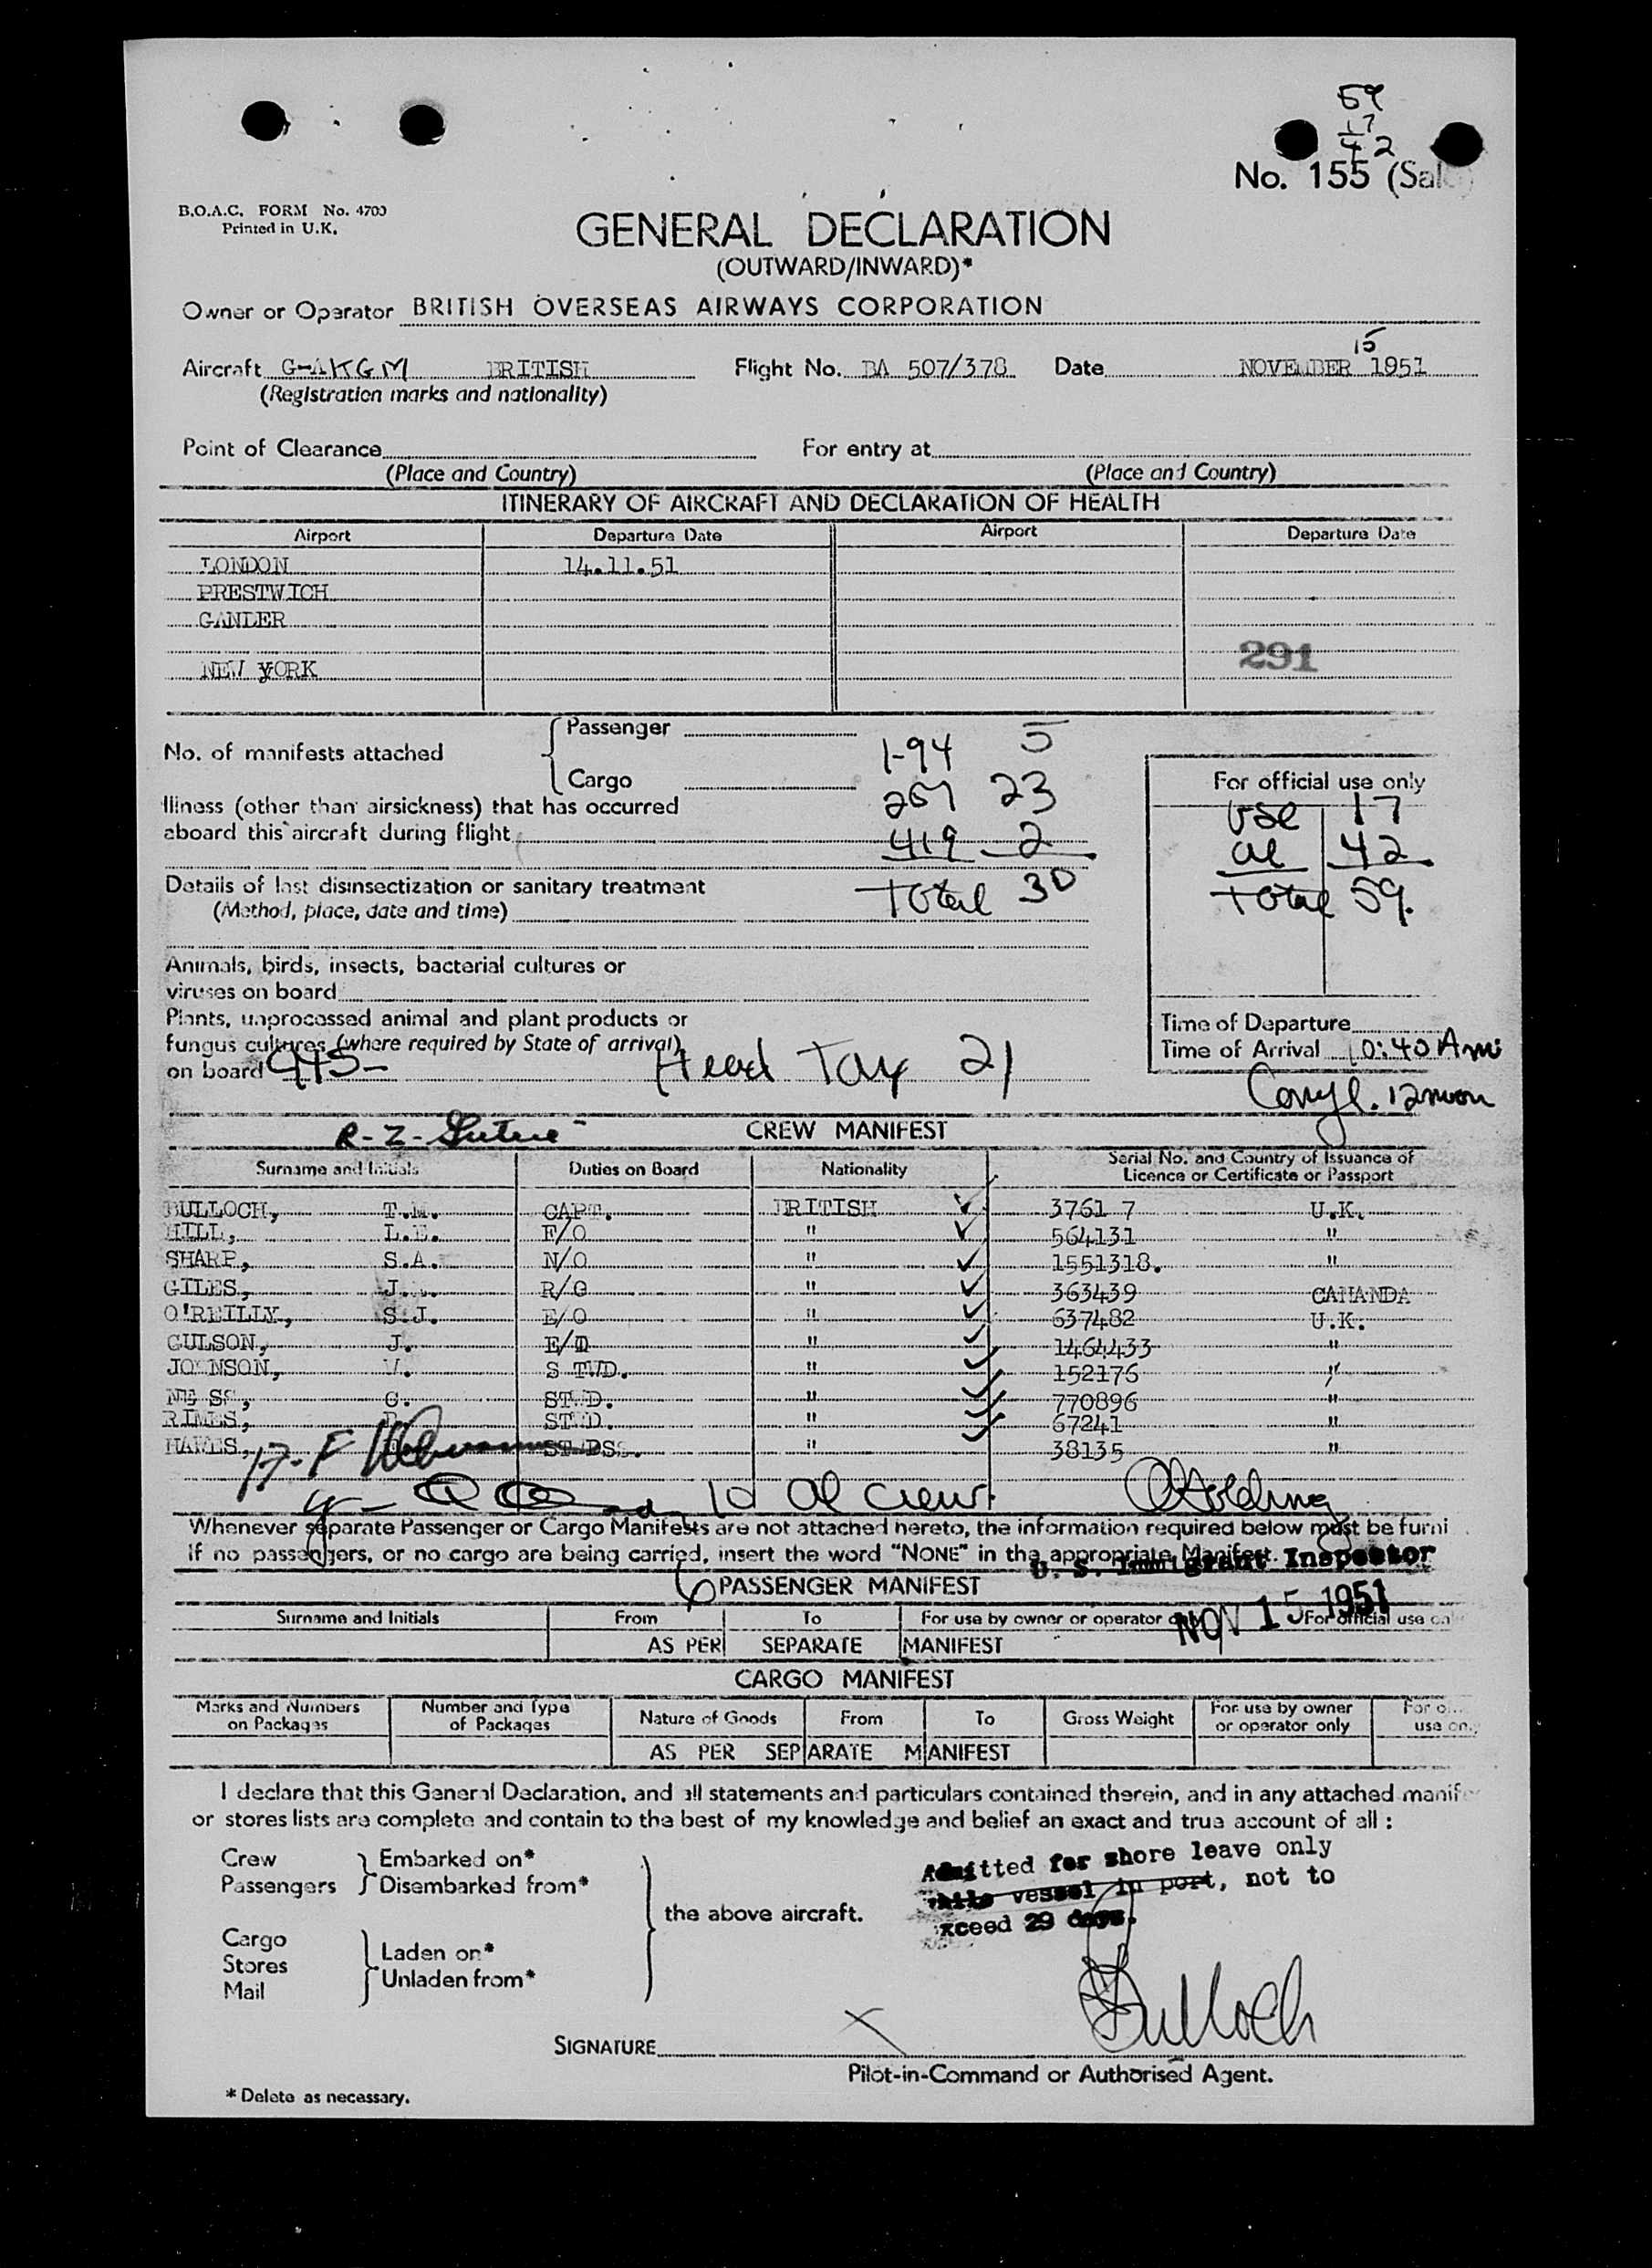 59
17
42
No. 155 (Sal
B.O.A.C. FORM No. 4700
Printed in U.K.
GENERAL DECLARATION
(OUTWARD/INWARD)*
Owner or Operator BRITISH OVERSEAS AIRWAYS CORPORATION
15
Aircraft G-AKGM BRITISH Flight No. BA 507/378 Date NOVEMBER 1951
(Registration marks and nationality)
Point of Clearance For entry at
(Place and Country) (Place and Country)
ITINERARY OF AIRCRAFT AND DECLARATION OF HEALTH
Airport Departure Date Airport Departure Date
LONDON 14.11.51
PRESTWICH
GANDER
291
NEW YORK
Passenger
No. of manifests attached
1-94 5
Cargo
For official use only
Illness (other than airsickness) that has occurred 257 23
USC 17
aboard this aircraft during flight 419 2
al 42
Details of last disinsectization or sanitary treatment Total 30
Total 59.
(Method, place, date and time)
Animals, birds, insects, bacterial cultures or
viruses on board
Plants, unprocessed animal and plant products or
Time of Departure
fungus cultures (where required by State of arrival)
Time of Arrival 10:40 Am
on board 945- Head Tax 21
CREW MANIFEST
Surname and Initials Duties on Board Nationality Serial No. and Country of Issuance of
Licence or Certificate or Passport
BULLOCH, T.M. CAPT. BRITISH 3761 7 U.K.
HILL, L.E. F/O " 564131 "
SHARP, S.A. N/O " 1551318. "
GILES, J. R/O " 363439 CANANDA
O'REILLY, S.J. E/O " 637482 U.K.
GULSON, J. E/O " 1464433 "
JOHNSON, V. S TWD. " 152176 "
NESS, G. STWD. " 770896 "
RIMES, STWD. " 67241 "
HAWES, STWDSS. " 38135 "
10 al crew.
Whenever separate Passenger or Cargo Manifests are not attached hereto, the information required below must be furni
If no passengers, or no cargo are being carried, insert the word "NONE" in the appropriate Manifest.
U. S. Immigrant Inspector
PASSENGER MANIFEST
NOV 15 1951
Surname and Initials From To For use by owner or operator only For official use on
AS PER SEPARATE MANIFEST
CARGO MANIFEST
Marks and Numbers on Packages Number and Type of Packages Nature of Goods From To Gross Weight For use by owner or operator only For o use on
AS PER SEPARATE MANIFEST
I declare that this General Declaration, and all statements and particulars contained therein, and in any attached manife
or stores lists are complete and contain to the best of my knowledge and belief an exact and true account of all :
Crew Embarked on*
Passengers Disembarked from*
the above aircraft.
Admitted for shore leave only
while vessel in port, not to
exceed 29 days.
Cargo
Stores Laden on*
Mail Unladen from*
X Bulloch
SIGNATURE
Pilot-in-Command or Authorised Agent.
* Delete as necessary.